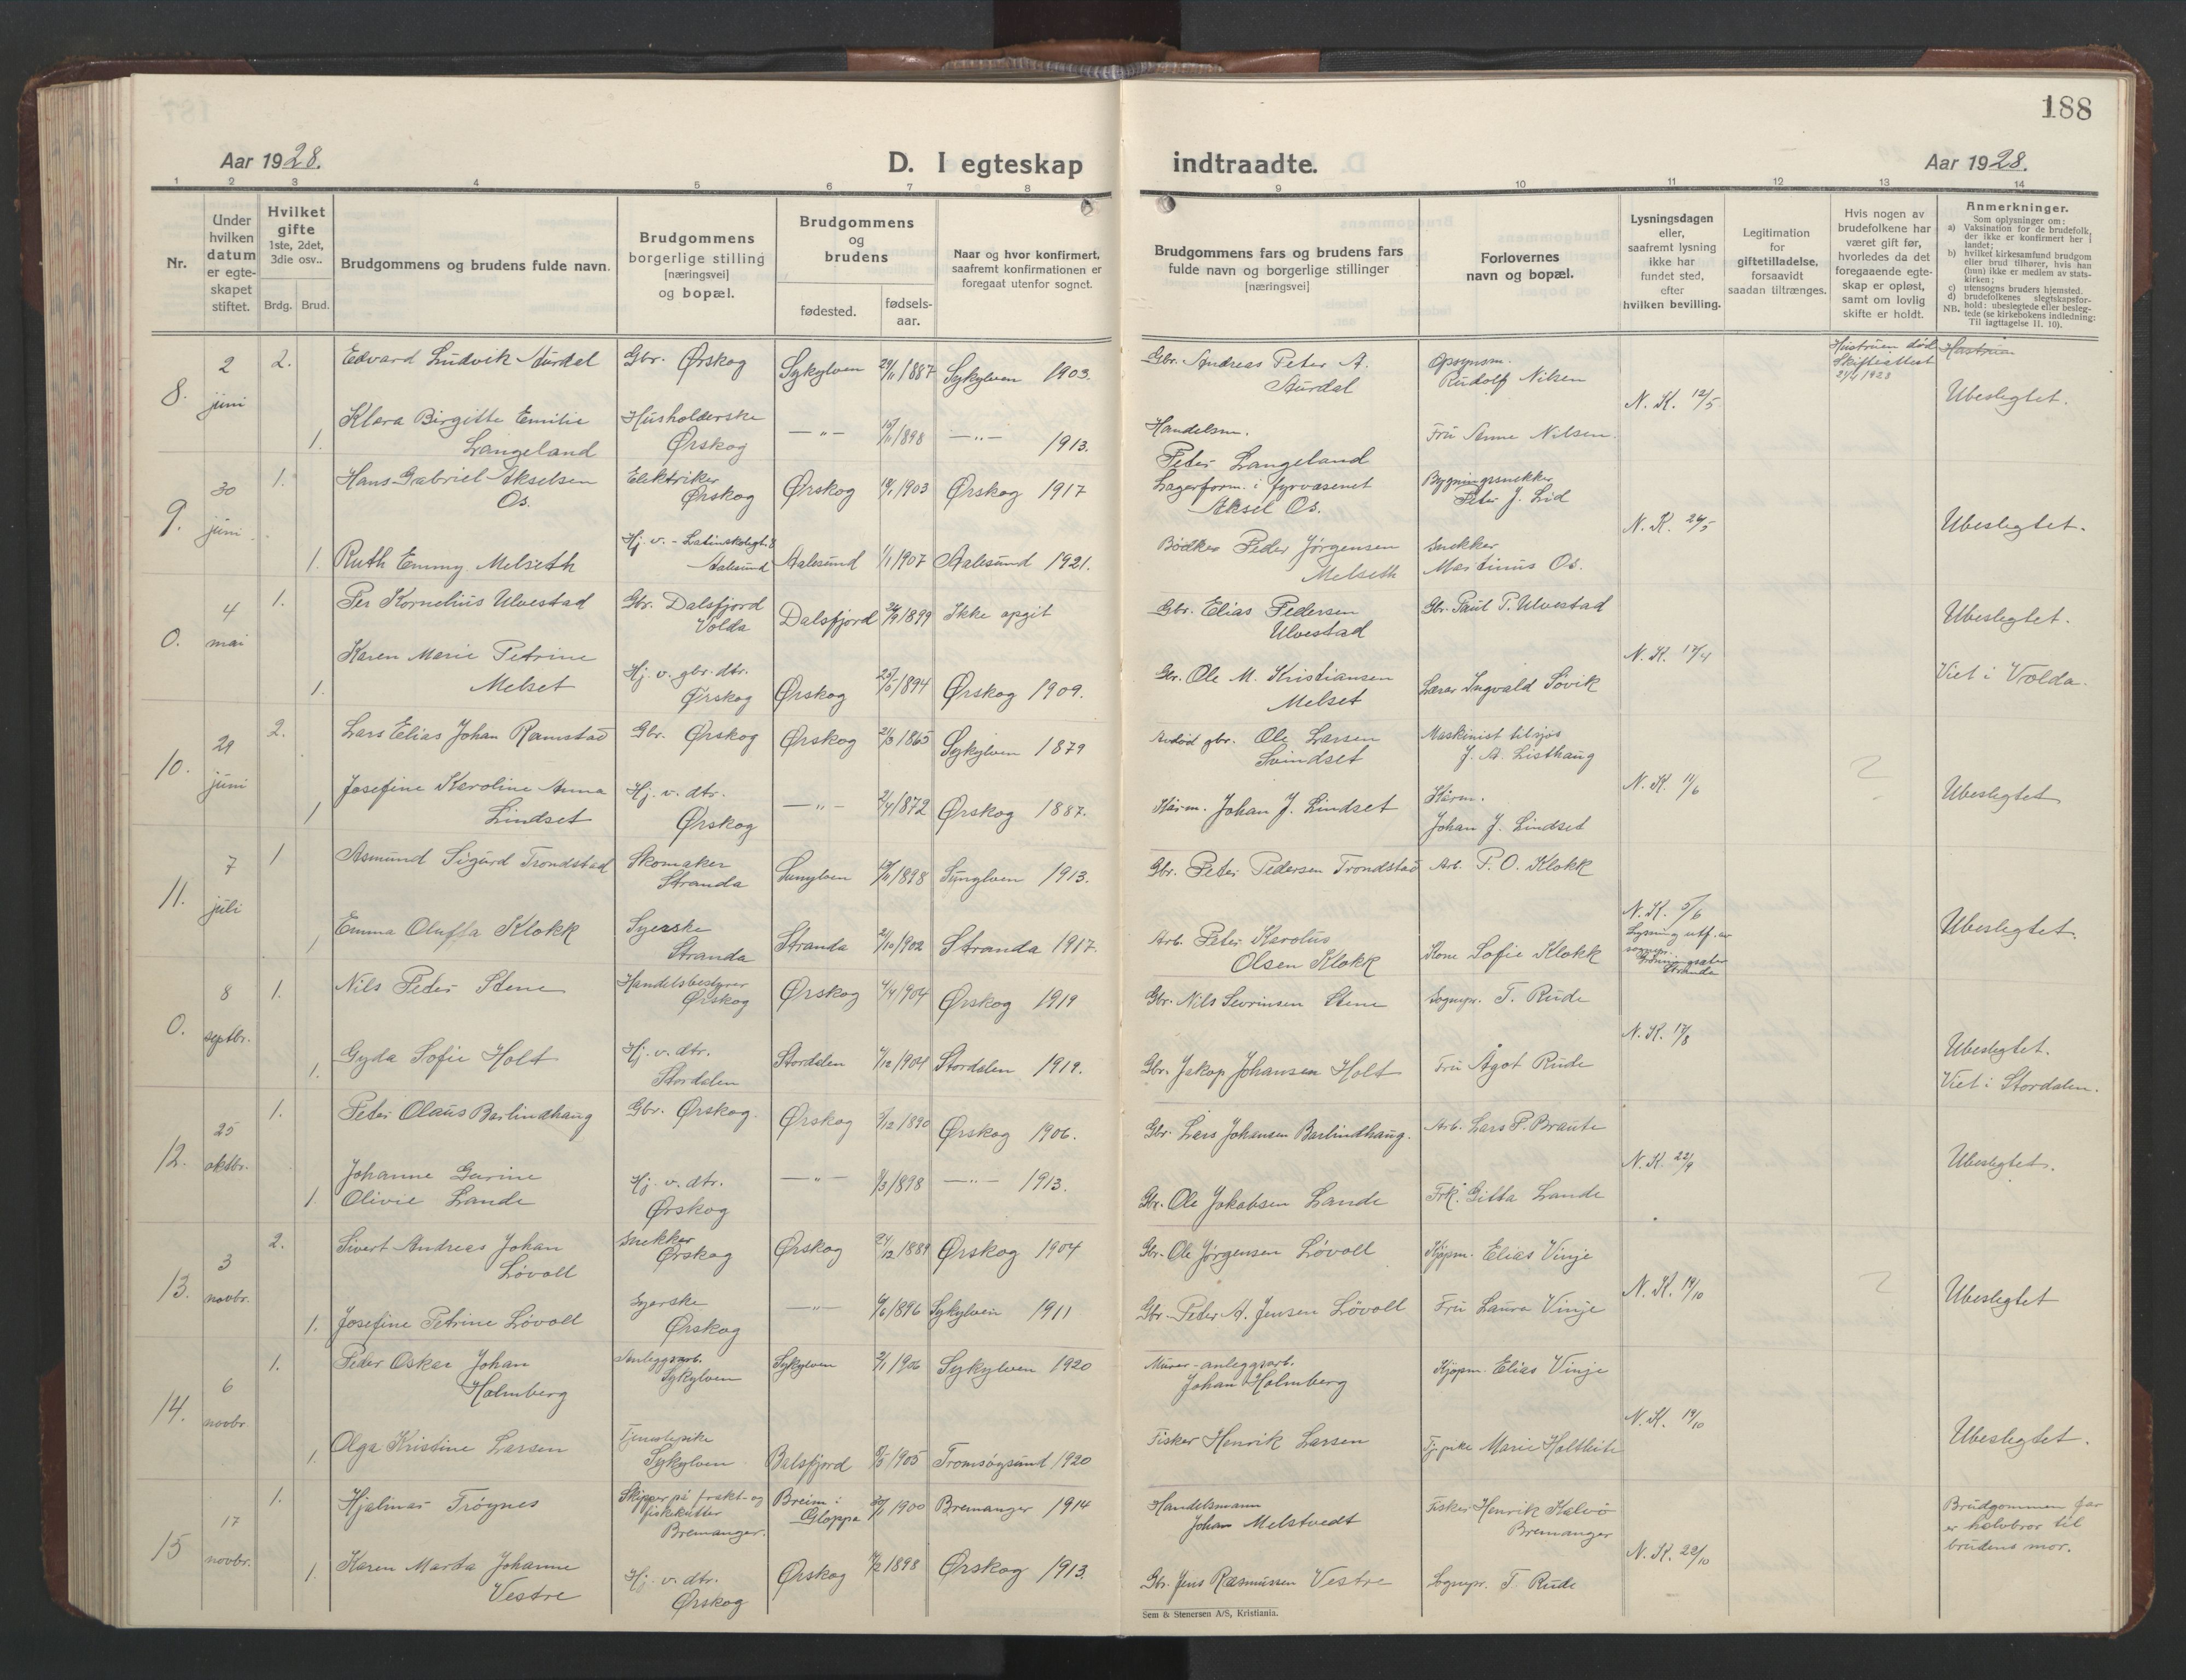 188
Aar 1928.
D. I egteskap
indtraadte.
Aar 1928.
1 2 3 4 5 6 7 8 9 10 11 12 13 14
Nr.
Under
hvilken
datum
er egte-
skapet
stiftet.
Hvilket
gifte
1ste, 2det,
3die osv..
Brdg. Brud.
Brudgommens og brudens fulde navn.
Brudgommens
borgerlige stilling
[næringsvei]
og bopæl.
Brudgommens
og
brudens
fødested.
fødsels-
aar.
Naar og hvor konfirmert,
saafremt konfirmationen er
foregaat utenfor sognet.
Brudgommens fars og brudens fars
fulde navn og borgerlige stillinger
[næringsvei]
Forlovernes
navn og bopæl.
Lysningsdagen
eller,
saafremt lysning
ikke har
fundet sted,
efter
hvilken bevilling.
Legitimation
for
giftetilladelse,
forsaavidt
saadan tiltrænges.
Hvis nogen av
brudefolkene har
været gift før,
hvorledes da det
foregaaende egte-
skap er opløst,
samt om lovlig
skifte er holdt.
Anmerkninger.
Som oplysninger om:
a) Vaksination for de brudefolk,
der ikke er konfirmert her i
landet;
b) hvilket kirkesamfund brudgom
eller brud tilhører, hvis han
(hun) ikke er medlem av stats-
kirken;
c) utensogns bruders hjemsted.
d) brudefolkenes slegtskapsfor-
hold: ubeslegtede eller besleg-
NB. tede (se kirkebokens indledning:
Til iagttagelse II. 10).
8. 2 juni 2. Edvard Ludvik Aurdal Gbr. Ørskog Sykylven 29/11 1887 Sykylven 1903. Gbr. Andreas Peter A. Aurdal Opsynsm. Rudolf Nilsen N. K. 12/5 Hustruen død Skifteattest 21/4 1928 Hustruen Ubeslegtet.
1. Klara Birgitte Emilie Langeland Husholderske Ørskog —"— 1898 —"— 1913. Handelsm. Peder Langeland Fru Anne Nilsen.
9. 30 juni 1. Hans Gabriel Akselsen Os. Elektriker Ørskog Ørskog 1903 Ørskog 1917 Lagerform. i fyrvæsenet Aksel Os. Bygningssnekker Peter J. Lid N. K. 26/5 Ubeslegtet.
1. Ruth Emmy Melseth Hj. v. - Latinskolegt. 8 Aalesund Aalesund 1/1 1907 Aalesund 1921. Bødker Peder Jørgensen Melseth Snekker Martinus Os.
0. 4 mai 1. Per Kornelius Ulvestad Gbr. Dalsfjord Volda Dalsfjord 1899 Ikke opgit Gbr. Elias Pedersen Ulvestad Gbr. Paul P. Ulvestad N. K. 17/4 Ubeslegtet.
1. Karen Marie Petrine Melset Hj. v. gbr. dtr. Ørskog Ørskog 1894 Ørskog 1909. Gbr. Ole M. Kristiansen Melset Lærer Ingvald Søvik Viet i Volda.
10. 29 juni 2. Lars Elias Johan Ramstad Gbr. Ørskog Ørskog 21/3 1865 Sykylven 1879 Avdød gbr. Ole Larsen Svindset Maskinist tilsjøs J. A. Listhaug N. K. 11/6 2 Ubeslegtet
1 Josefine Karoline Anna Lindset Hj. v. dtr. Ørskog —"— 2/4 1872 Ørskog 1887. Kårm. Johan J. Lindset Kårm. Johan J. Lindset
11. 7 juli 1 Asmund Sigurd Trondstad Skomaker Stranda Sunylven 1898 Sunylven 1913. Gbr. Peter Pedersen Trondstad Arb. P. O. Klokk N. K. 5/6 Lysning utf. av sognepr. Stranda Ubeslegtet.
1 Emma Oluffa Klokk Syerske Stranda Stranda 2/10 1902 Stranda 1917. Arb. Peter Karolus Olsen Klokk Kone Sofie Klokk
0. 8 septbr. 1. Nils Peder Stene Handelsbestyrer Ørskog Ørskog 4/4 1904 Ørskog 1919 Gbr. Nils Sevrinsen Stene Sognepr. T. Rude N. K. 17/8 Ubeslegtet.
1. Gyda Sofie Holt Hj. v. dtr. Stordalen Stordalen 1904 Stordalen 1919. Gbr. Jakop Johansen Holt Fru Ågot Rude Viet i Stordalen.
12. 25 oktbr. 1. Peter Olaus Barlindhaug Gbr. Ørskog. Ørskog 3/12 1890 Ørskog 1906. Gbr. Lars Johansen Barlindhaug. Arb. Lars P. Braute N. K. 22/9 Ubeslegtet.
1. Johanne Gurine Olivie Lande Hj. v. dtr. Ørskog —"— 1/3 1898 —"— 1913. Gbr. Ole Jakobsen Lande Frk. Gitta Lande
13. 3 novbr. 2. Sivert Andreas Johan Løvoll Snekker Ørskog Ørskog 24/12 1889 Ørskog 1904 Gbr. Ole Jørgensen Løvoll Kjøpm. Elias Vinje N. K. 19/10 2 Ubeslegtet
1. Josefine Petrine Løvoll Syerske Ørskog —"— 1896 Sykylven 1911 Gbr. Peter A. Jensen Løvoll Fru Laura Vinje
14. 6 novbr. 1. Peder Oskar Johan Holmberg Anleggsarb. Sykylven Sykylven 2/1 1906 Sykylven 1920 Murer-anleggsarb. Johan Holmberg Kjøpm. Elias Vinje N. K. 19/10 Ubeslegtet.
1. Olga Kristine Larsen Tjenestepike Sykylven Balsfjord 1905 Tromsøysund 1920 Fisker Henrik Larsen Tj.pike Marie Holtleite
15 17 novbr. 1. Hjalmar Trøynes Skipper på frakt- og fiskekutter Bremanger. Breim i Gloppen 1900 Bremanger 1914 Handelsmann Johan Melstvedt Fisker Henrik Kalvø Bremanger N. K. 22/10 Brudgommens far er halvbror til brudens mor.
1. Karen Marta Johanne Vestre Hj. v. dtr. Ørskog Ørskog 1898 Ørskog 1913. Gbr. Jens Rasmussen Vestre Sognepr. T. Rude
Sem & Stenersen A/S, Kristiania.